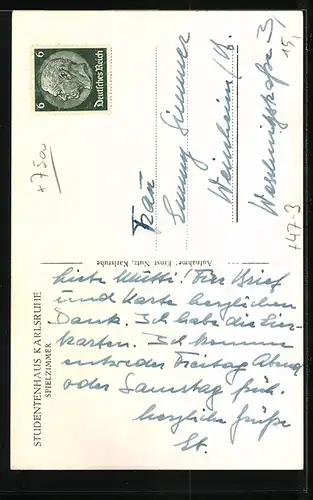 STUDENTENHAUS KARLSRUHE
SPIELZIMMER
Liebe Mutti! Für Brief
und Karte herzlichen
Dank. Ich habe die
karten. Ich komme
entweder Freitag Abend
oder Samstag früh.
herzliche Grüße
Aufnahme: Ernst Nutz, Karlsruhe
6 6
Deutsches Reich
Frau
Emmy Simmer
Weinheim
3
15,
+47-3